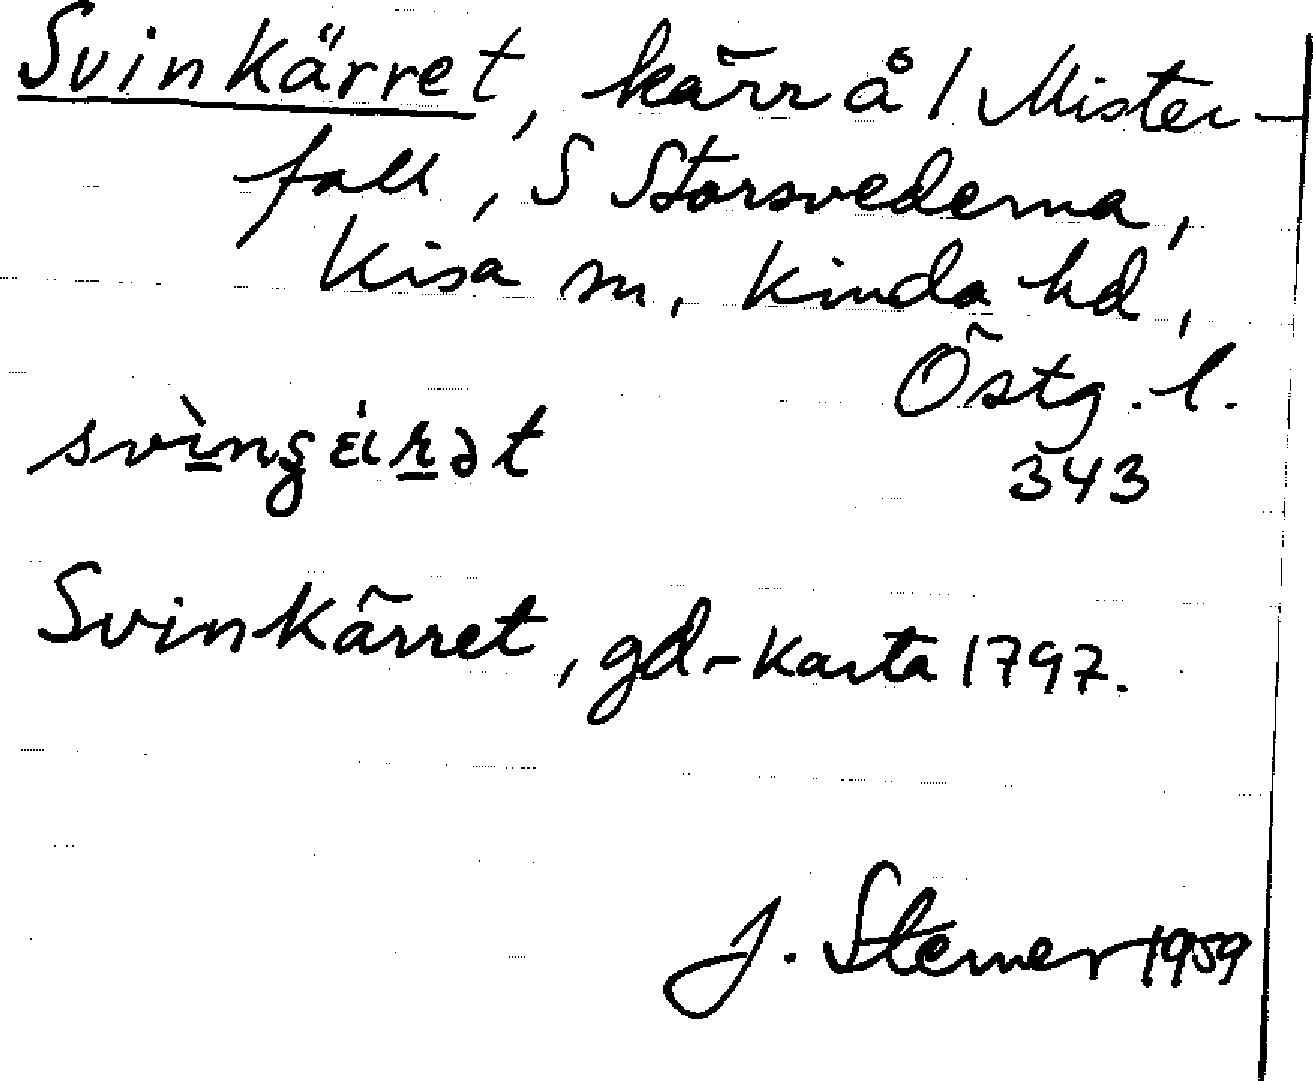 Svinkärret, kärr å 1 Mister-
fall, S Storsvederna,
Kisa sn, Kinda hd,
Östg. l.
343
Svinkärret, gd-karta 1797.
J. Sterner 1959